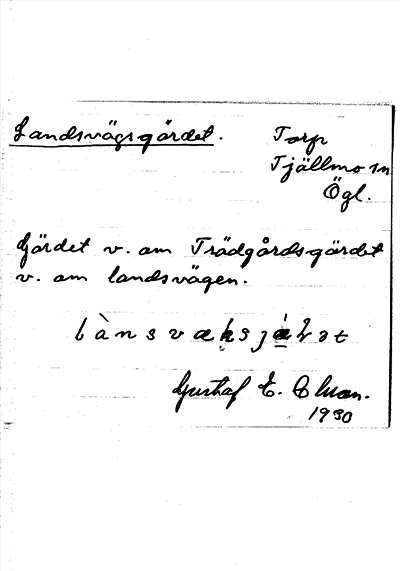 Landsvägsgärdet. Torp
Tjällmo sn
Ögl.
Gärdet v. om Trädgårdsgärdet
v. om landsvägen.
Gustaf E.
1930